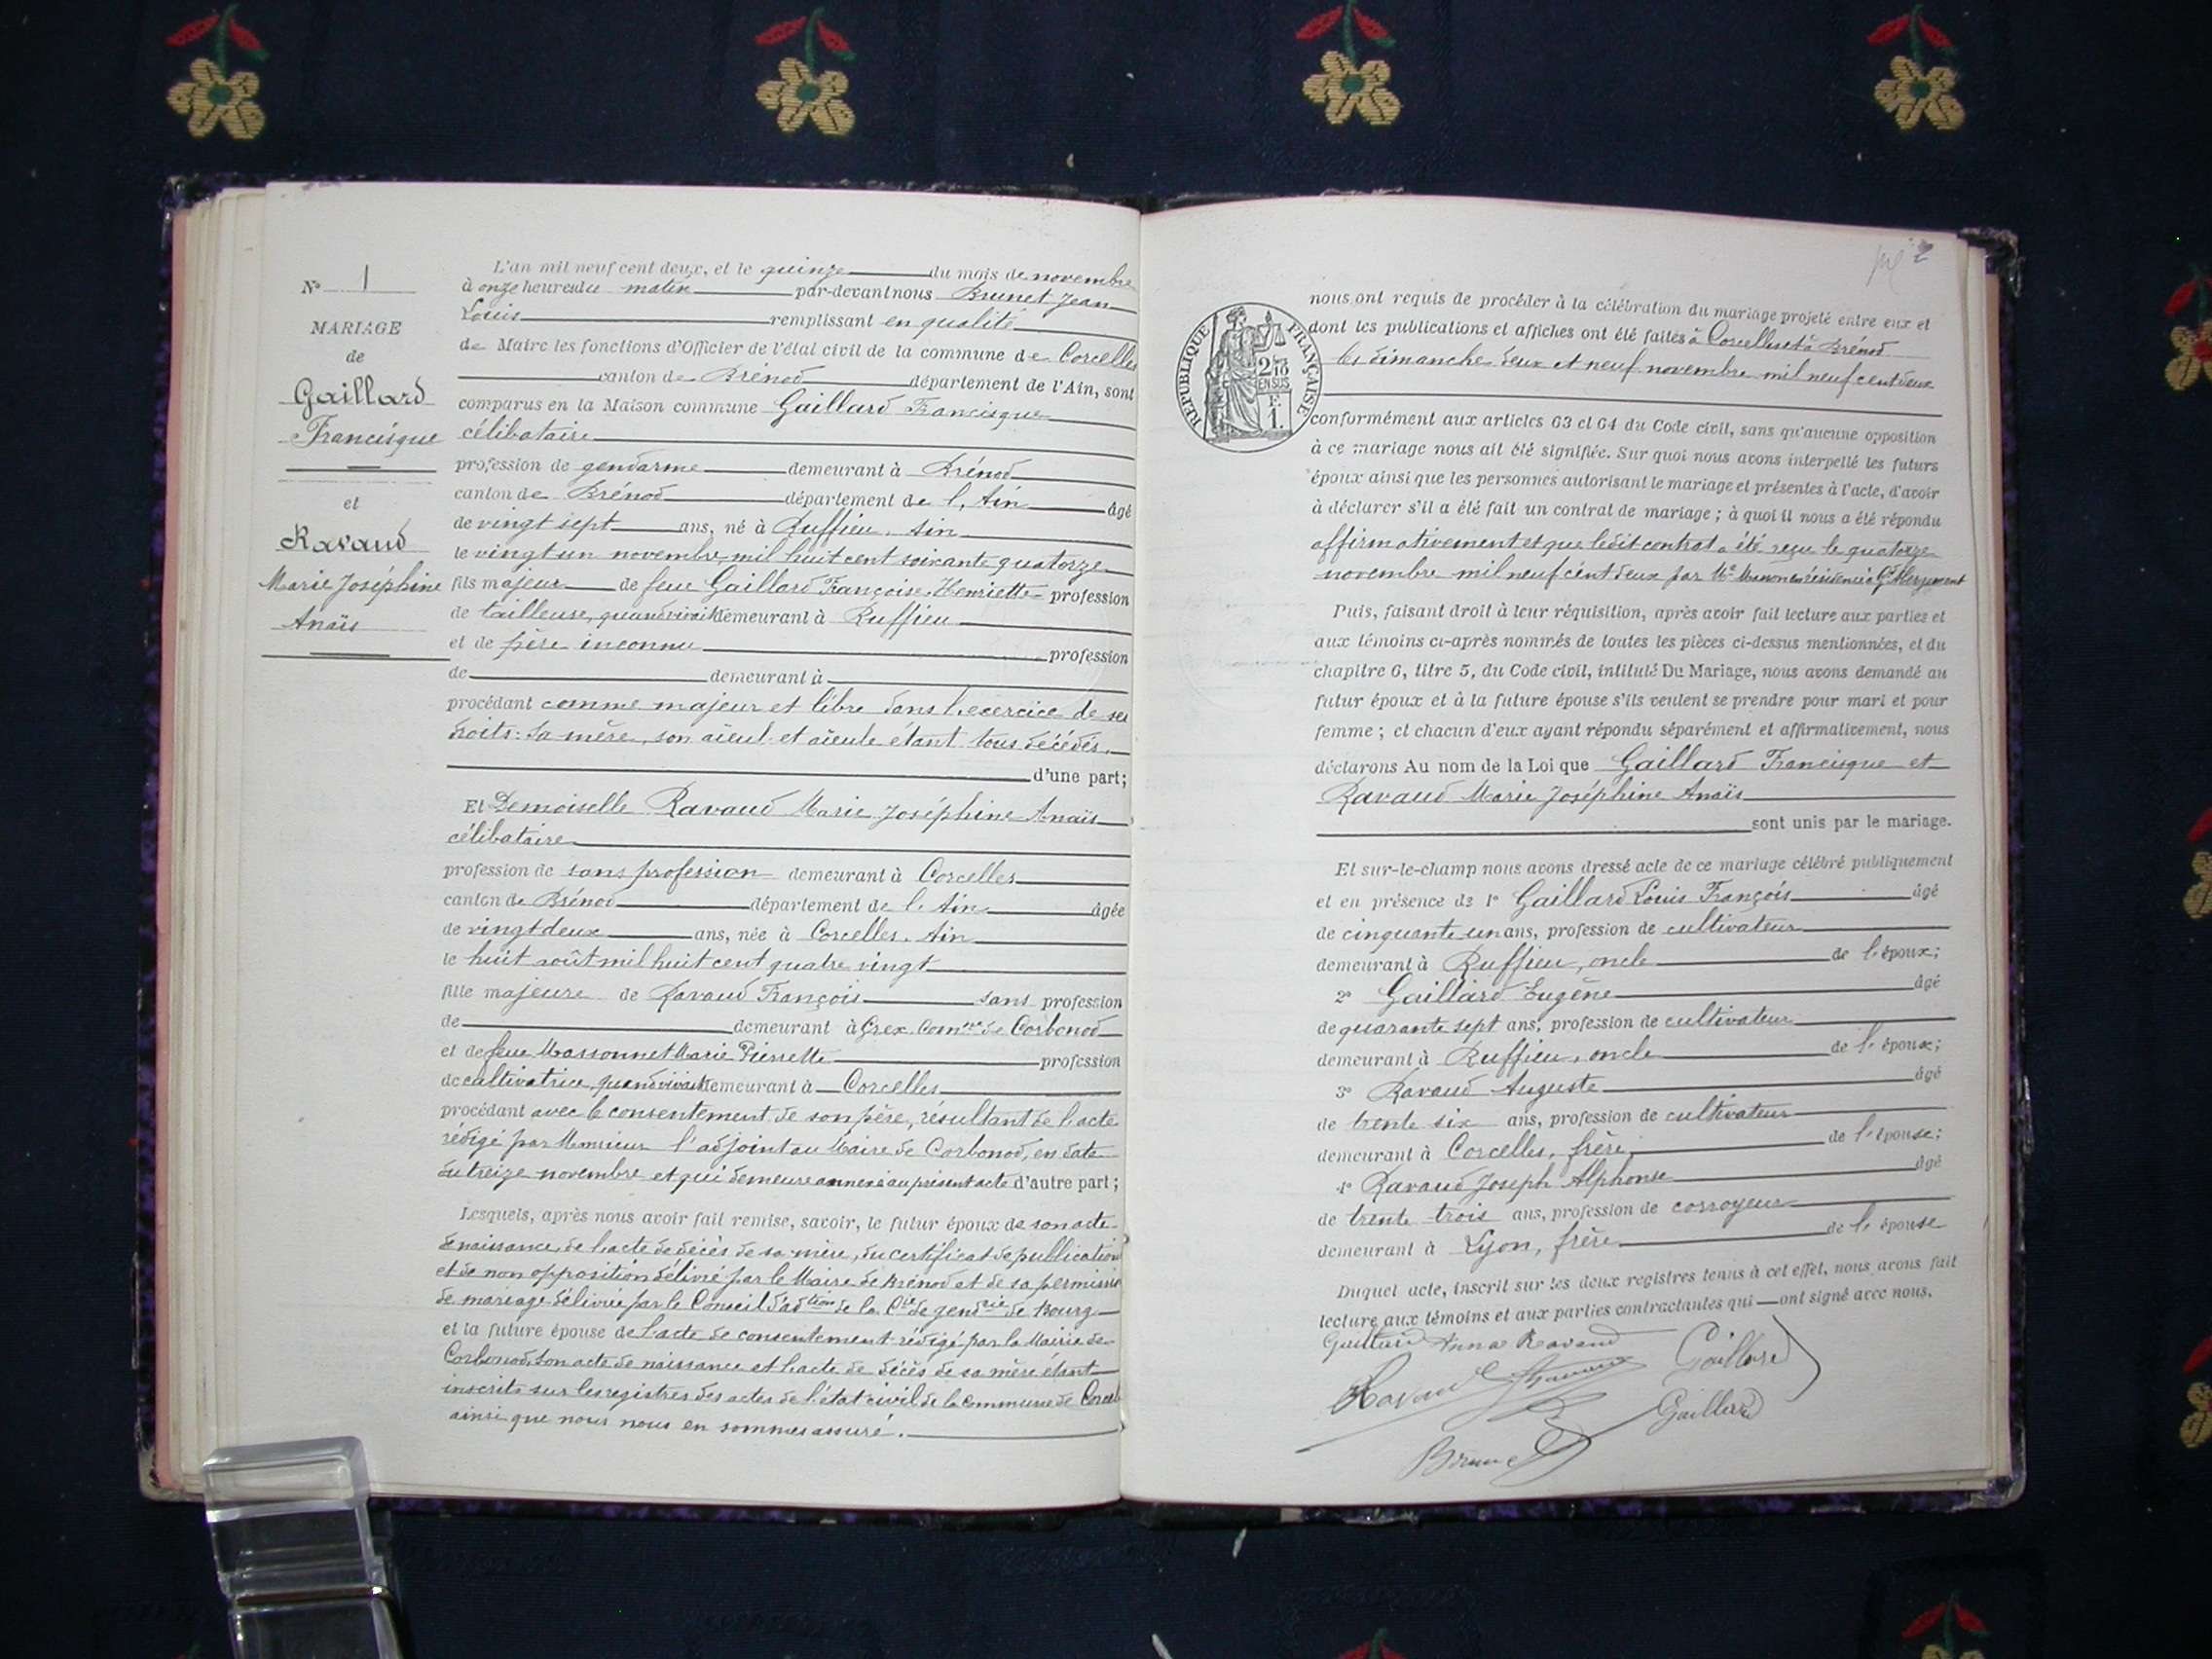 N° 1
MARIAGE
de
Gaillard
Francisque
et
Ravaud
Marie Joséphine
Anaïs
L'an mil neuf cent deux, et le quinze du mois de novembre
à onze heures du matin par-devant nous Brunet Jean
Louis remplissant en qualité
de Maire les fonctions d'Officier de l'état civil de la commune de Corcelles
canton de Brénod département de l'Ain, sont
comparus en la Maison commune Gaillard Francisque
célibataire
profession de gendarme demeurant à Brénod
canton de Brénod département de l'Ain âgé
de vingt sept ans, né à Ruffieu, Ain
le vingt un novembre mil huit cent soixante quatorze
fils majeur de feue Gaillard Françoise Henriette profession
de tailleuse, quand vivait demeurant à Ruffieu
et de père inconnu profession
de demeurant à
procédant comme majeur et libre dans l'exercice de ses
droits: sa mère, son aïeul et aïeule étant tous décédés.
d'une part;
Et Demoiselle Ravaud Marie Joséphine Anaïs
célibataire
profession de sans profession demeurant à Corcelles
canton de Brénod département de l'Ain âgée
de vingt deux ans, née à Corcelles, Ain
le huit août mil huit cent quatre vingt
fille majeure de Ravaud François sans profession
de demeurant à Grex Comne de Corbonod
et de feue Massonnet Marie Pierrette profession
de cultivatrice, quand vivait demeurant à Corcelles
procédant avec le consentement de son père, résultant de l'acte
rédigé par Monsieur l'adjoint au Maire de Corbonod, en date
du treize novembre et qui demeure annexé au présent acte d'autre part;
Lesquels, après nous avoir fait remise, savoir, le futur époux de son acte
de naissance, de l'acte de décès de sa mère, du certificat de publication
et de non opposition délivré par le Maire de Brénod et de sa permission
de mariage délivrée par le Conseil d'adtion de la Cie de gendrie de Bourg
et la future épouse de l'acte de consentement rédigé par la Mairie de
Corbonod, son acte de naissance et l'acte de décès de sa mère étant
inscrits sur les registres des actes de l'état civil de la commune de Corcelles
ainsi que nous nous en sommes assuré.
2
RÉPUBLIQUE FRANÇAISE
2/10
EN SUS
F.
1.
nous ont requis de procéder à la célébration du mariage projeté entre eux et
dont les publications et affiches ont été faites à Corcelles et à Brénod
les dimanche deux et neuf novembre mil neuf cent deux
conformément aux articles 63 et 64 du Code civil, sans qu'aucune opposition
à ce mariage nous ait été signifiée. Sur quoi nous avons interpellé les futurs
époux ainsi que les personnes autorisant le mariage et présentes à l'acte, d'avoir
à déclarer s'il a été fait un contrat de mariage; à quoi il nous a été répondu
affirmativement et que ledit contrat a été reçu le quatorze
novembre mil neuf cent deux par Me en résidence à
Puis, faisant droit à leur réquisition, après avoir fait lecture aux parties et
aux témoins ci-après nommés de toutes les pièces ci-dessus mentionnées, et du
chapitre 6, titre 5, du Code civil, intitulé Du Mariage, nous avons demandé au
futur époux et à la future épouse s'ils veulent se prendre pour mari et pour
femme; et chacun d'eux ayant répondu séparément et affirmativement, nous
déclarons Au nom de la Loi que Gaillard Francisque et
Ravaud Marie Joséphine Anaïs
sont unis par le mariage.
Et sur-le-champ nous avons dressé acte de ce mariage célébré publiquement
et en présence de 1° Gaillard Louis François âgé
de cinquante un ans, profession de cultivateur
demeurant à Ruffieu, oncle de l'époux;
2° Gaillard Eugène âgé
de quarante sept ans, profession de cultivateur
demeurant à Ruffieu, oncle de l'époux;
3° Ravaud Auguste âgé
de trente six ans, profession de cultivateur
demeurant à Corcelles, frère de l'épouse;
4° Ravaud Joseph Alphonse âgé
de trente trois ans, profession de corroyeur
demeurant à Lyon, frère de l'épouse
Duquel acte, inscrit sur les deux registres tenus à cet effet, nous avons fait
lecture aux témoins et aux parties contractantes qui ont signé avec nous.
Gaillard Anna Ravaud
Gaillard
Ravaud
Gaillard
Brunet